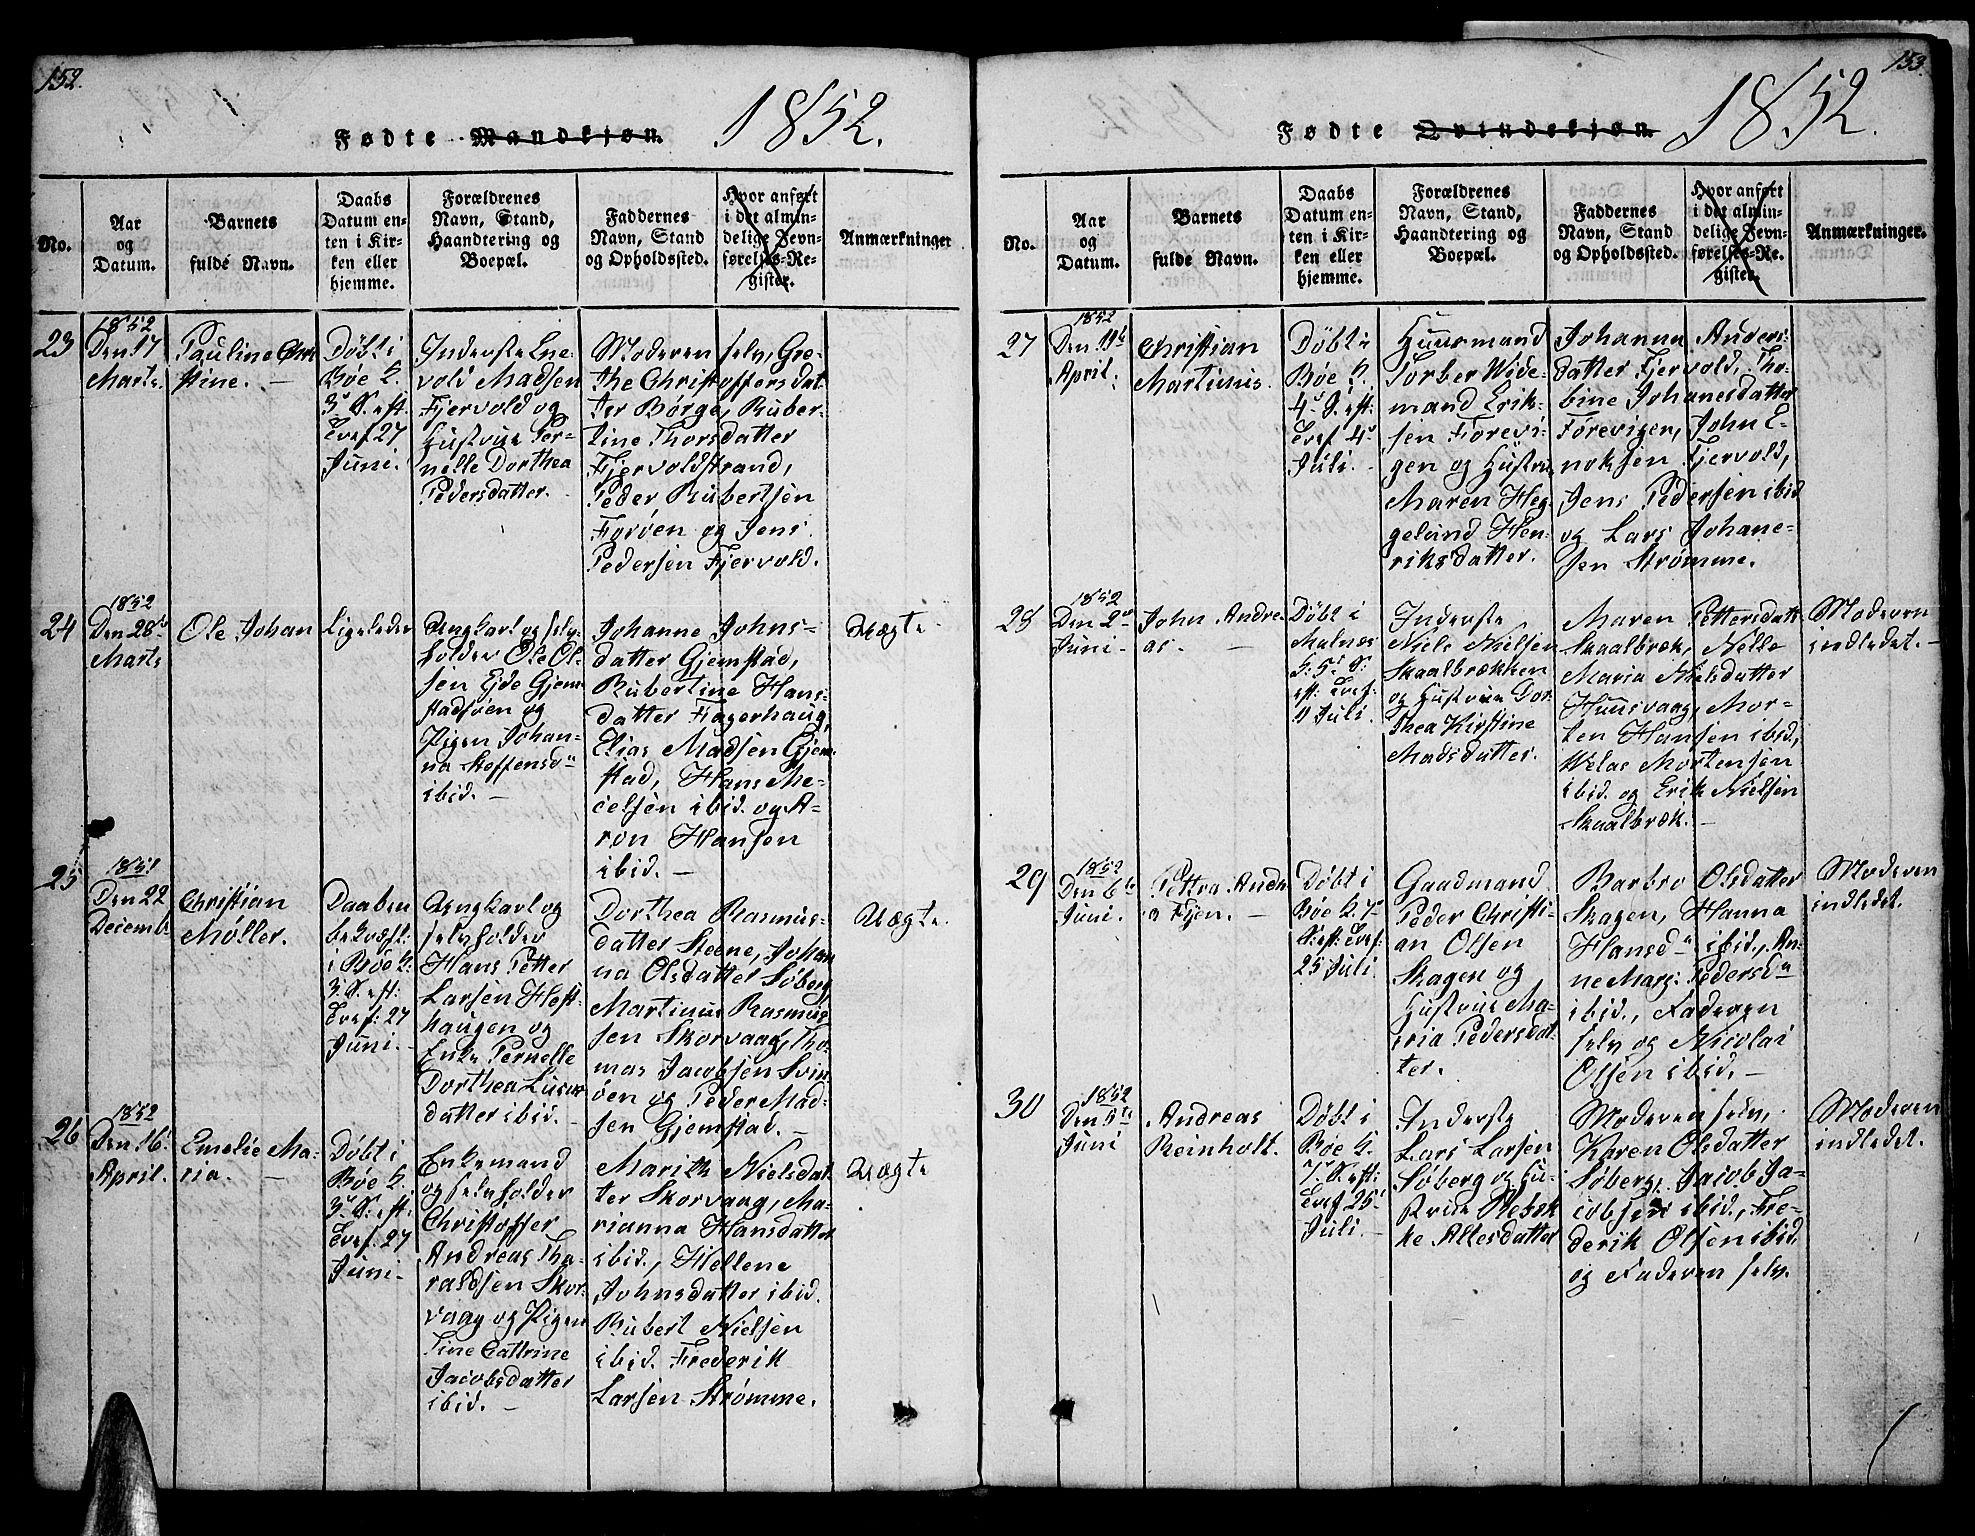 152.
Fødte Mandkjøn. 1852.
No.
Aar
og
Datum.
Barnets
fulde Navn.
Daabs
Datum en-
ten i Kir-
ken eller
hjemme.
Forældrenes
Navn, Stand,
Haandtering og
Boepæl.
Faddernes
Navn, Stand
og Opholdssted.
Hvor anført
i det almin-
delige Jevn-
førelses-Re-
gister.
Anmærkninger
23
1852
Den 17
Marts.
Pauline Chri
stine. -
Døbt i
Bøe K.
3. S. eft.
Tref. 27
Juni.
Inderste Ene-
vold Madsen
Fjervold og
Hustrue Per-
nelle Dorthea
Pedersdatter.
Moderen selv, Gre-
the Christoffersdat-
ter Børge, Ruber-
tine Thorsdatter
Fjervoldstrand,
Peder Rubertsen
Forøen og Jens
Pedersen Fjervold.
24
1852
Den 28
Marts
Ole Johan
Ligeledes
Ungkarl og selv-
holder Ole Ol-
sen Eide Gjem-
stadsven og
Pigen Johan-
na Steffensd
ibid. -
Johanne Johns-
datter Gjemstad,
Rubertine Hans-
datter Fagerhaug,
Elias Madsen Gjem-
stad, Hans Mi-
celsen ibid. og A-
ron Hansen
ibid. -
Uægte.
25
1851
Den 22
Decemb.
Christian
Møller.
Daaben
bekræft.
i Bøe K.
3. S. eft.
Tref. 27
Juni. -
Ungkarl og
selvholder
Hans Petter
Larsen Heft-
haugen og
Enke Pernelle
Dorthea Lucas-
datter ibid. -
Dorthea Rasmus-
datter Steene, Johan
na Olsdatter Søberg
Martinus Rasmus
sen Skorvaag, Tho-
mas Jacobsen Svin-
øen og Peder Mad-
sen Gjemstad. -
Uægte.
26
1852
Den 16
April.
Emelie Ma-
ria. -
Døbt i
Bøe K.
3. S. eft.
Tref. 27
Juni -
Enkemand
og selvholder
Christoffer
Andreas Tha-
raldsen Skor-
vaag og Pigen
Tine Cathrine
Jacobsdatter
ibid. -
Marith Nielsdat-
ter Skorvaag, Ma-
rianna Hansdatter
ibid., Hellene
Johnsdatter ibid.
Rubert Nielsen
ibid. Frederik
Larsen Strømme.
Uægte
153.
Fødte Qvindekjøn. 1852.
No.
Aar
og
Datum.
Barnets
fulde Navn.
Daabs
Datum en-
ten i Kir-
ken eller
hjemme.
Forældrenes
Navn, Stand,
Haandtering og
Boepæl.
Faddernes
Navn, Stand
og Opholdssted.
Hvor anført
i det almin-
delige Jevn-
førelses-Re-
gister.
Anmærkninger.
27
1852
Den 19
April.
Christian
Martinus.
Døbt i
Bøe K.
4. S. eft.
Tref 4
Juli. -
Huusmand
Torber Wide-
mand Erik-
sen Forevi-
gen og Hustru
Maren Heg-
gelund Hen-
riksdatter.
Johanna Anders-
datter Fjervold, Tho-
bine Johanesdatter
Forevigen, John E-
noksen Fjervold,
Jens Pedersen ibid
og Lars Johane-
sen Strømme.
28
1852
Den 2
Juni -
John Andre
as. -
Døbt i
Malnes
K. 5 S.
eft: Tref.
Juli.
Inderste
Niels Nielsen
Skaalbrækken
og Hustrue Dor-
thea Kirstine
Madsdatter.
Maren Pettersdatt
Skaalbræk, Nelle
Maria Nielsdatter
Huusvaag, Mor-
ten Hansen ibid,
Welas Mortensen
ibid. og Erik Nielsen
Skaalbræk. -
Moderen
indledet. -
29
1852
Den 6
Juni.
Pettra Andre
a Fjen. -
Døbt i
Bøe K. 7
S. eft: Tref:
25 Juli.
Gaadmand
Peder Christi-
an Olsen
Skagen og
Hustrue Ma-
ria Pedersdat-
ter.
Barbro Olsdatter
Skagen, Hanna
Hansd ibid., An-
ne Marg: Pedersd
ibid., Faderen
selv og Nicolai
Olsen ibid. -
Moderen
indledet.
30
1852
Den
Juni
Andreas
Reinholt.
Døbt i
Bøe K.
7. S. eft:
Tref 25
Juli. -
Inderste
Lars Larsen
Søberg og Hu-
strue Rebek
ke Altesdatter
Moderen selv,
Karen Olsdatter
Søberg, Jacob Ja-
cobsen ibid., Fre-
derik Olsen ibid.
og Faderen selv.
Moderen
indledet.